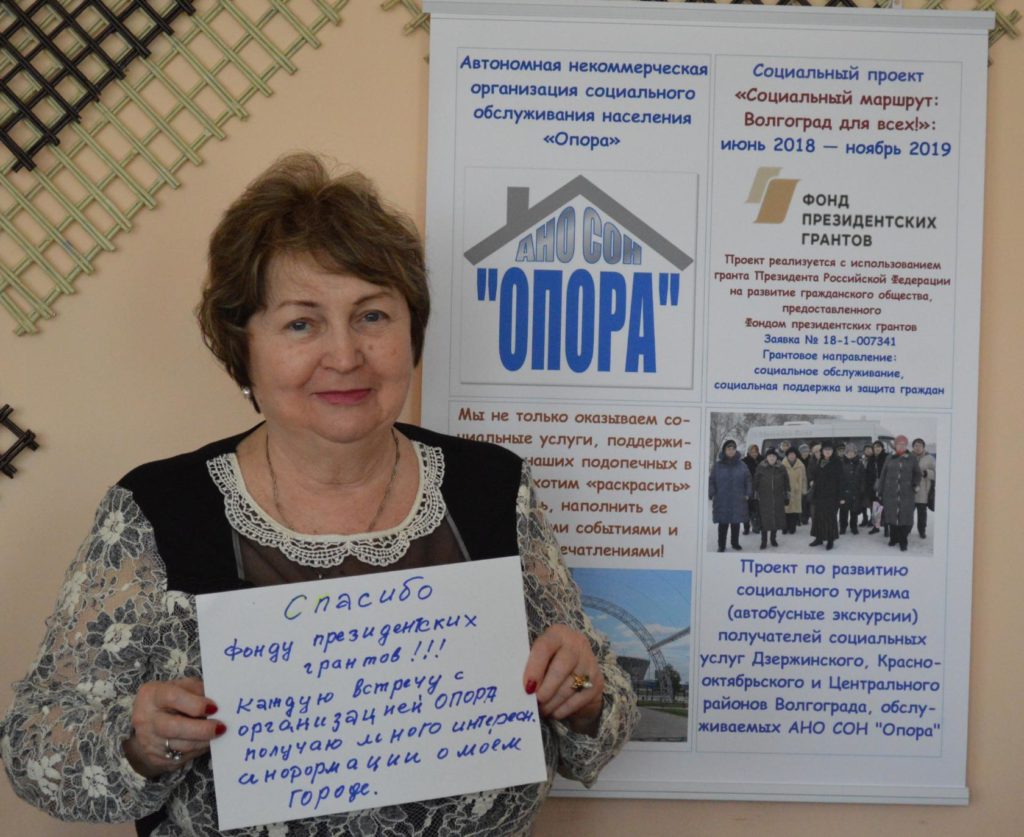 Автономная некоммерческая
организация социального
обслуживания населения
«Опора»
АНО СОН
"ОПОРА"
Социальный проект
«Социальный маршрут:
Волгоград для всех!»:
июнь 2018 — ноябрь 2019
ФОНД
ПРЕЗИДЕНТСКИХ
ГРАНТОВ
Проект реализуется с использованием
гранта Президента Российской Федерации
на развитие гражданского общества,
предоставленного
Фондом президентских грантов
Заявка № 18-1-007341
Грантовое направление:
социальное обслуживание,
социальная поддержка и защита граждан
Мы не только оказываем со-
циальные услуги, поддержи-
наших подопечных в
хотим «раскрасить»
наполнить ее
событиями и
печатлениями!
Проект по развитию
социального туризма
(автобусные экскурсии)
получателей социальных
услуг Дзержинского, Красно-
октябрьского и Центрального
районов Волгограда, обслу-
живаемых АНО СОН "Опора"
Спасибо
Фонду президентских
грантов!!!
Каждую встречу с
организацией ОПОРА
получаю много интересн.
информации о моём
городе.